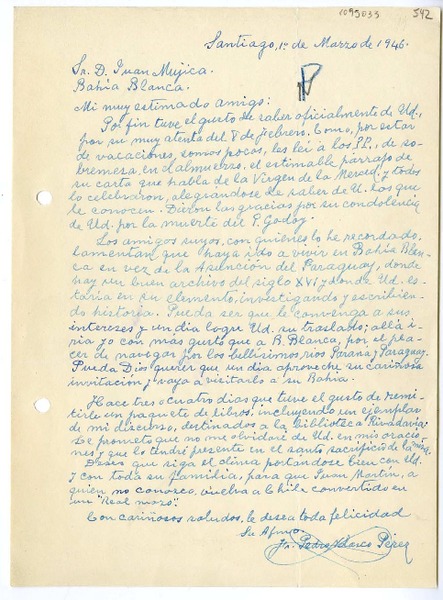 1095033 542
Santiago, 1º de Marzo de 1946.
Sr. D. Juan Mujica.
Bahía Blanca.
Mi muy estimado amigo:
Por fin tuve el gusto de saber oficialmente de Ud.,
por su muy atenta del 8 de febrero. Como, por estar
de vacaciones, somos pocos, les leí a los PP., de so-
bremesa, en el almuerzo, el estimable párrafo de
su carta que habla de la Virgen de la Merced, y todos
lo celebraron, alegrándose de saber de U. los que
le conocen. Dieron las gracias por su condolencia
de Ud. por la muerte del P. Godoy.
Los amigos suyos, con quienes lo he recordado,
lamentan que haya ido a vivir en Bahía Blan-
ca en vez de la Asunción del Paraguay, donde
hay un buen archivo del siglo XVI y donde Ud. es-
taría en su elemento, investigando y escribien-
do historia. Pueda ser que le convenga a sus
intereses y un día logre Ud. su traslado; allá i-
ría yo con más gusto que a B. Blanca, por el pla-
cer de navegar por los bellísimos ríos Paraná y Paraguay.
Pueda Dios querer que un día aproveche su cariñosa
invitación y vaya a visitarlo a su Bahía.
Hace tres o cuatro días que tuve el gusto de remi-
tirle un paquete de libros, incluyendo un ejemplar
de mi discurso, destinados a la biblioteca Rivadavia.
Le prometo que no me olvidaré de Ud. en mis oracio-
nes y que lo tendré presente en el santo sacrificio de la misa.
Deseo que siga el clima portándose bien con Ud.
y con toda su familia, para que Juan Martín, a
quien no conozco, vuelva a Chile convertido en
un "Real mozo".
Con cariñosos saludos, le desea toda felicidad
Su Afmo.
Fr. Pedro Pérez